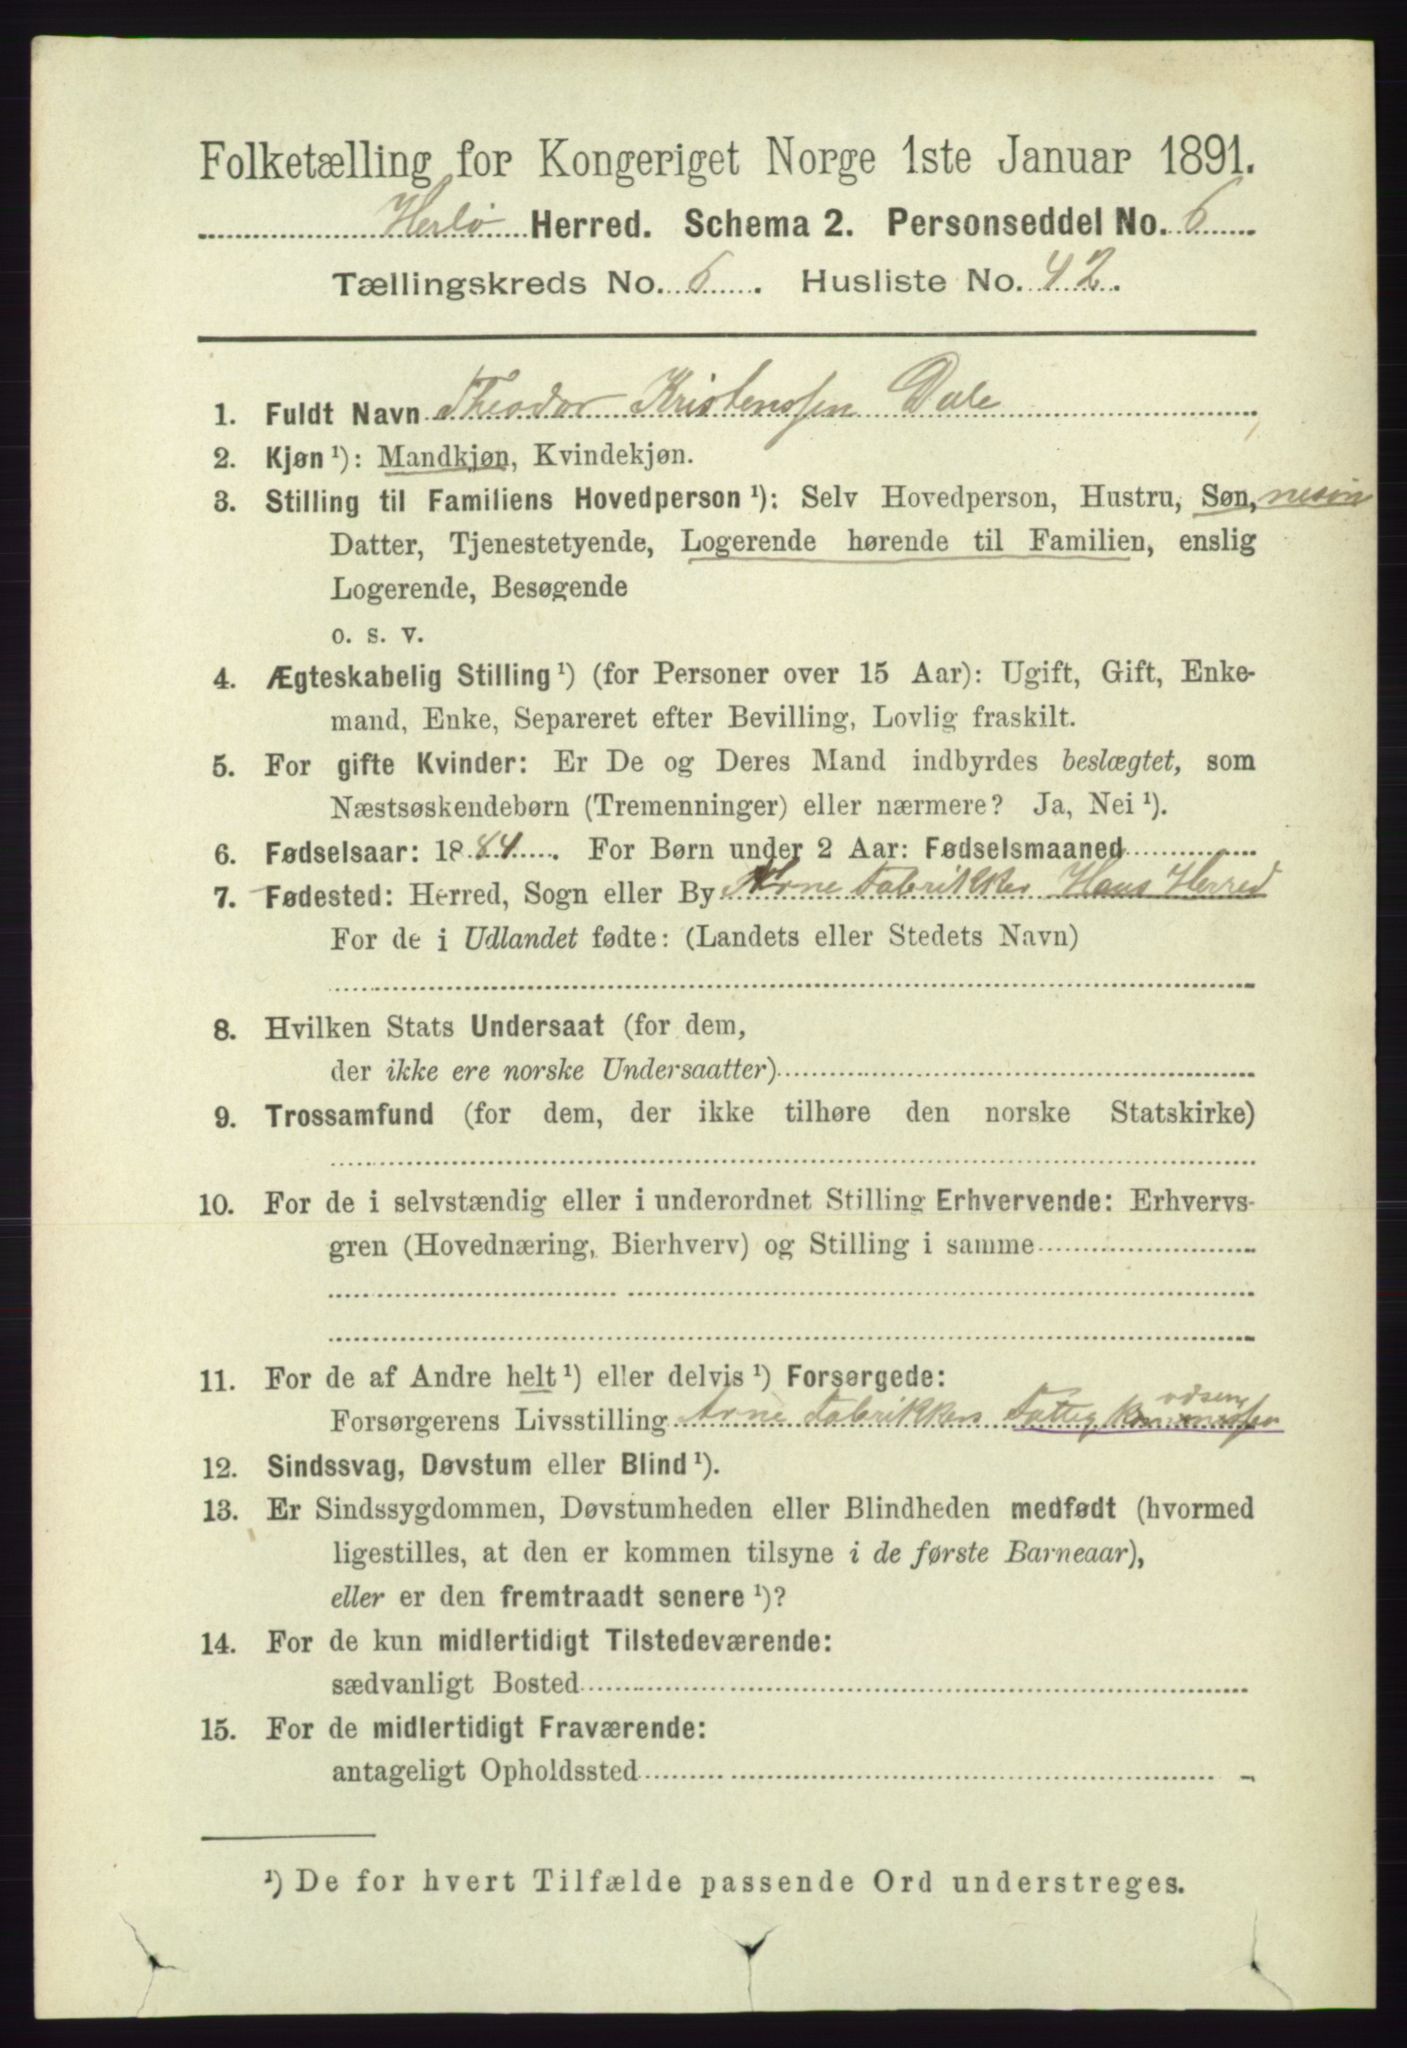 Folketælling for Kongeriget Norge 1ste Januar 1891.
Herlø Herred. Schema 2. Personseddel No. 6
Tællingskreds No. 6. Husliste No. 42.
1. Fuldt Navn Theodor Kristenssen Dale
2. Kjøn ¹): Mandkjøn, Kvindekjøn.
3. Stilling til Familiens Hovedperson ¹): Selv Hovedperson, Hustru, Søn,
Datter, Tjenestetyende, Logerende hørende til Familien, enslig
Logerende, Besøgende
o. s. v.
4. Ægteskabelig Stilling ¹) (for Personer over 15 Aar): Ugift, Gift, Enke-
mand, Enke, Separeret efter Bevilling, Lovlig fraskilt.
5. For gifte Kvinder: Er De og Deres Mand indbyrdes beslægtet, som
Næstsøskendebørn (Tremenninger) eller nærmere? Ja, Nei ¹).
6. Fødselsaar: 1884. For Børn under 2 Aar: Fødselsmaaned
7. Fødested: Herred, Sogn eller By Arne Fabrikker Haus Herred
For de i Udlandet fødte: (Landets eller Stedets Navn)
8. Hvilken Stats Undersaat (for dem,
der ikke ere norske Undersaatter)
9. Trossamfund (for dem, der ikke tilhøre den norske Statskirke)
10. For de i selvstændig eller i underordnet Stilling Erhvervende: Erhvervs-
gren (Hovednæring, Bierhverv) og Stilling i samme
11. For de af Andre helt ¹) eller delvis ¹) Forsørgede:
Forsørgerens Livsstilling Arne Fabrikkers Fattig
12. Sindssvag, Døvstum eller Blind ¹).
13. Er Sindssygdommen, Døvstumheden eller Blindheden medfødt (hvormed
ligestilles, at den er kommen tilsyne i de første Barneaar),
eller er den fremtraadt senere ¹)?
14. For de kun midlertidigt Tilstedeværende:
sædvanligt Bosted
15. For de midlertidigt Fraværende:
antageligt Opholdssted
¹) De for hvert Tilfælde passende Ord understreges.